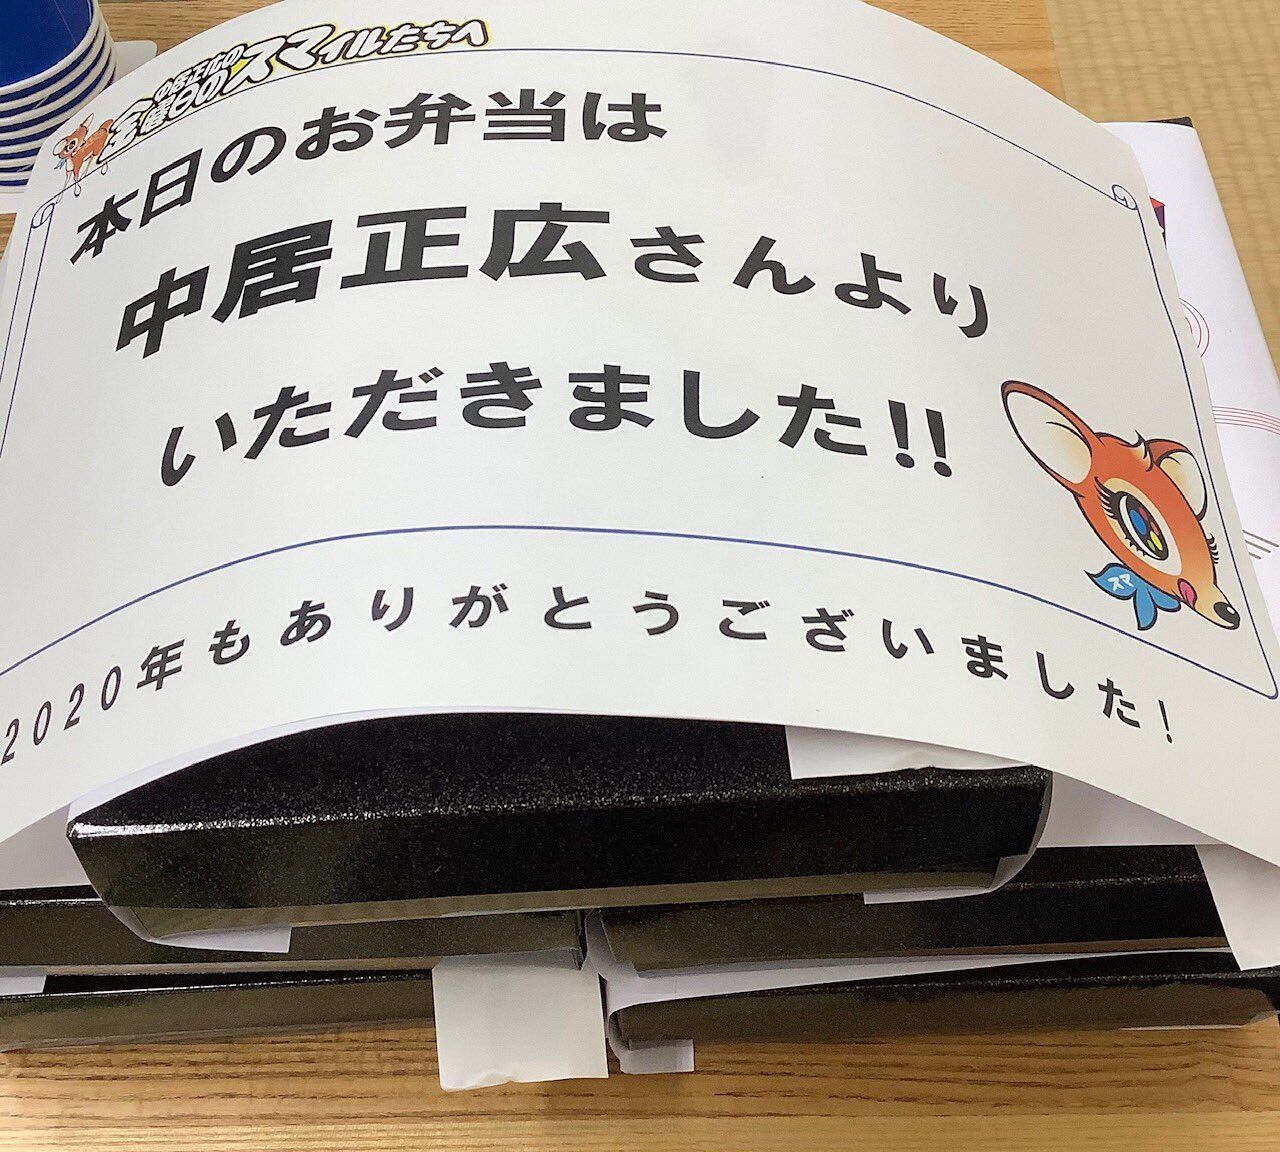 中居正広の
金曜日のスマイルたちへ
本日のお弁当は
中居正広さんより
いただきました!!
スマ
2020年もありがとうございました!